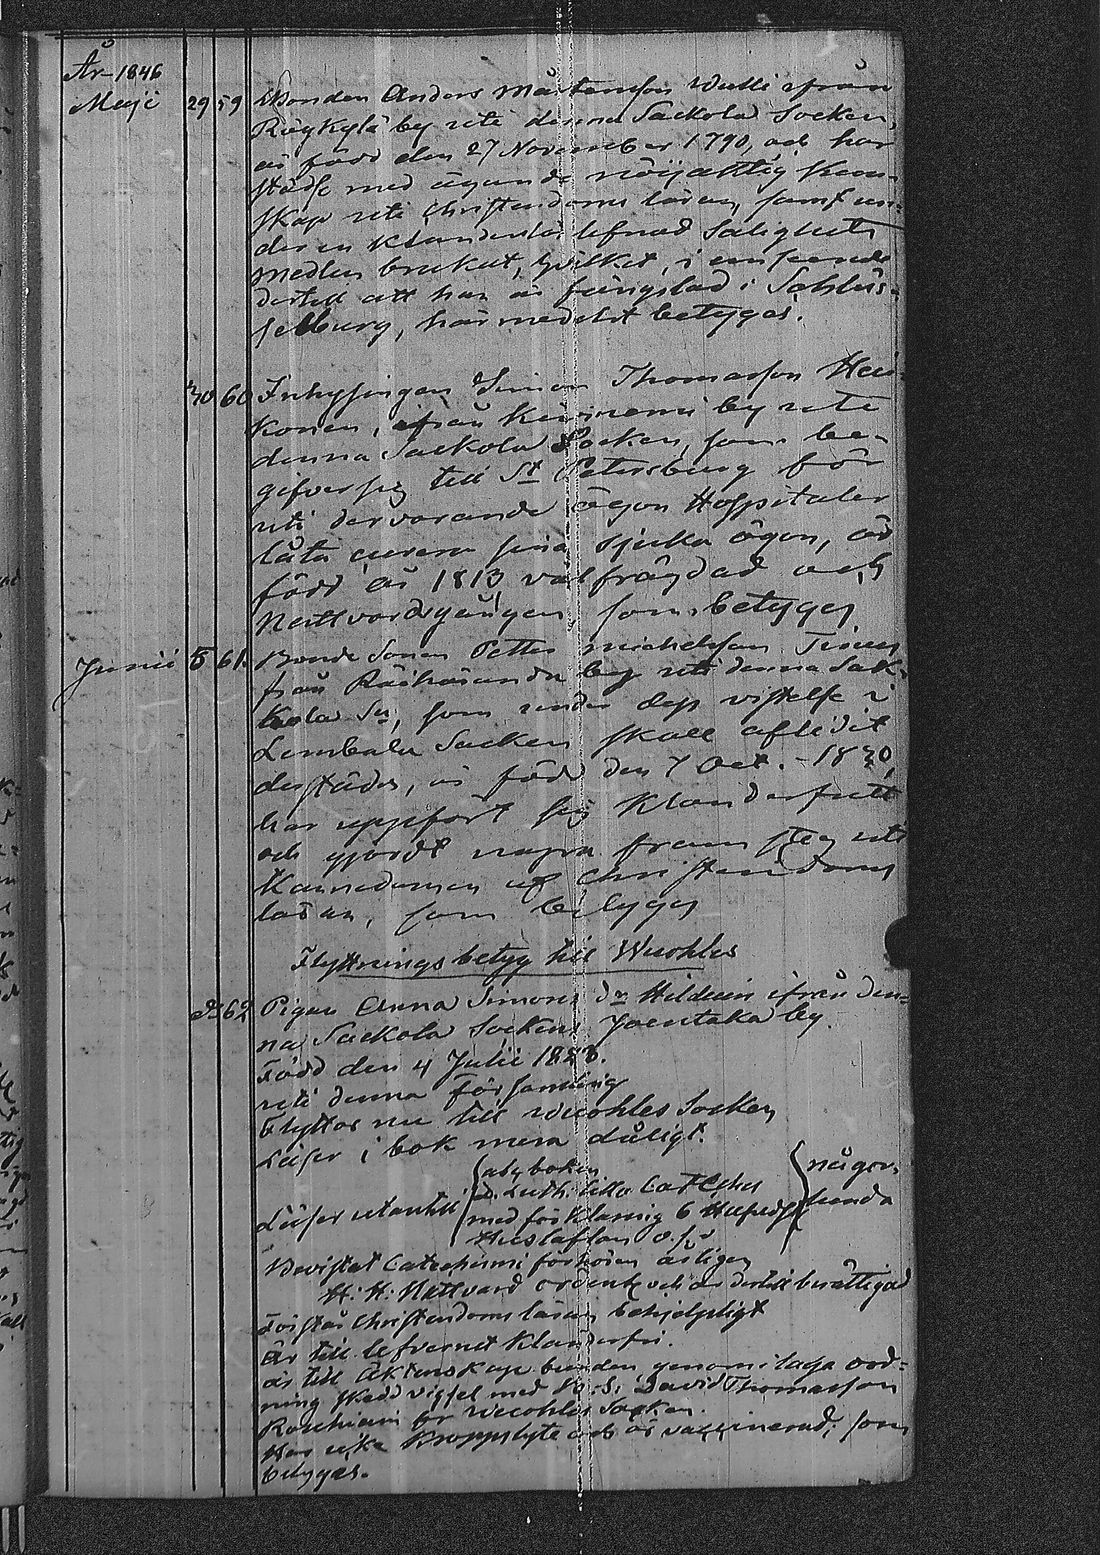 År 1846
Maji 29 59 Bonden Anders Mårtensson Wulli ifrån
Röykylä by uti denna Sackola Socken,
är född den 27 November 1790, och har
städse med ägande nöijacktig kun-
skap uti Christendoms läran, samt un-
der en klanderlös lefnad Salighets
medlen brukat, hvilket, i anseende
dertill att han är fängslad i Schlüs-
selburg, härmedelst betygas.
30 60 Inhysingen Simon Thomasson Hei-
konen, ifrån Kiiminemi by uti
denna Sackola Socken, som be-
gifver sig till St Petersburg för
uti dervarande ögon Hospitaler
låta curera sina sjuka ögon, är
född år 1813, väl frägdad och
Nattvardsgången som betygas
Junii 5 61. Bonde Sonen Petter Michelsson
från Räihäranda by uti denna Sac-
kola Sn, som under dess vistelse i
Lembala Socken skall aflidit
derstädes, är född den 7 Oct. 1830,
har uppfört sig klanderfritt
och gjordt några framsteg uti
Kännedomen af Christendoms
läran, som betygas
Flyttningsbetyg till Wuohles
62 Pigan Anna Simons dr Hildein ifrån den-
na Sackola Sockens Joentaka by.
Född den 4 Julii 1823.
uti denna Församling
flyttar nu till Wuohles Socken
Läser i bok mera dåligt.
Läser utantill abc boken någor-
D. Luth. lilla Catches lunda
med förklaring 6 Hufvudst
Hustaflan o. s. v
Bevistat Catechismi förhören årligen
H. H. Nattvard ordentl och är dertill berättigad
Förstår Christendoms läran behjelpligt
Är till lefvernet klanderfri.
är till Äktenskap bunden genom i laga ord-
ning skedd vigsel med David Thomasson
Wuohles Socken.
Har icke kroppslyte och är vaccinerad; som
betygas.